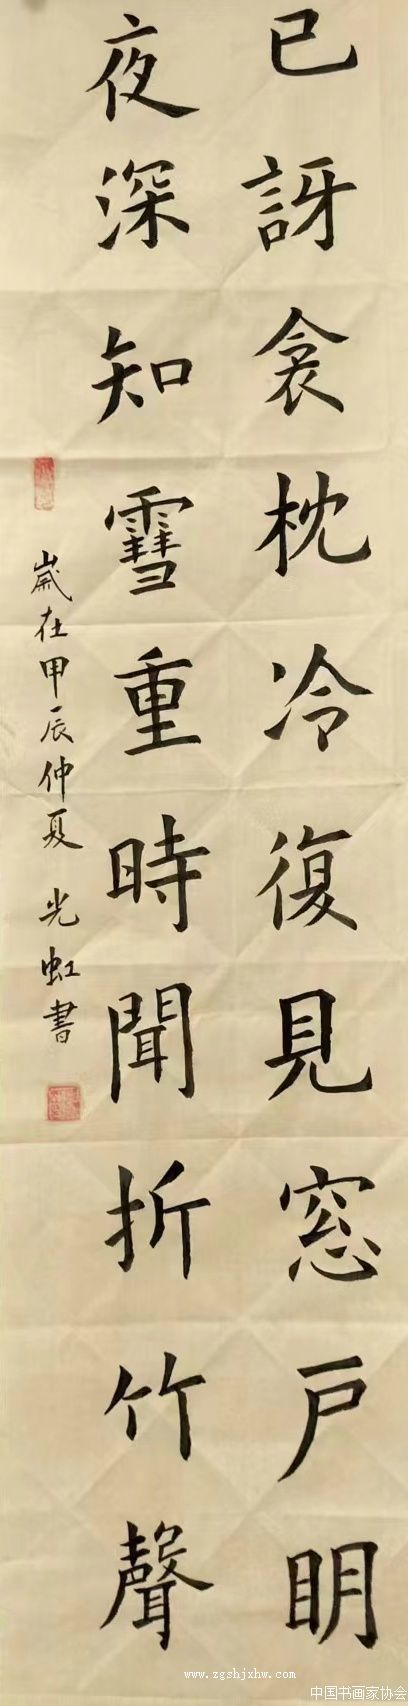 已訝衾枕冷復見窓戶明
夜深知雪重時聞折竹聲
歲在甲辰仲夏 光虹書
www.zgshjxhw.com
中国书画家协会